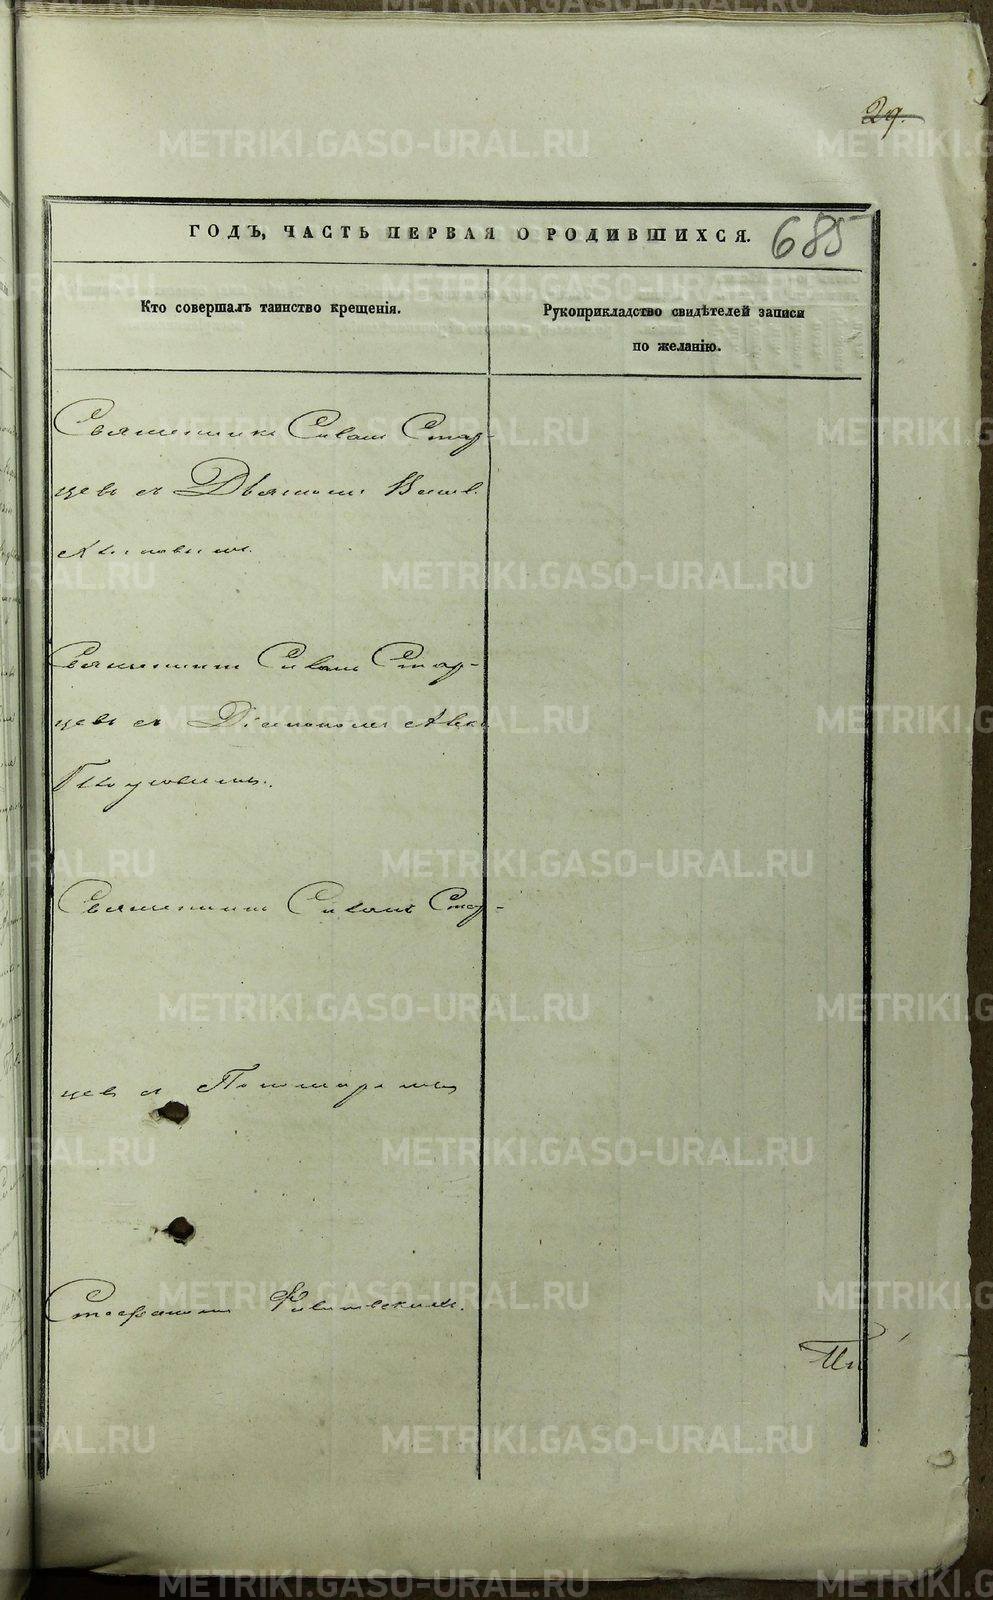 29.
ГОДЪ, ЧАСТЬ ПЕРВАЯ О РОДИВШИХСЯ.
685
Кто совершалъ таинство крещенія.
Рукоприкладство свидѣтелей записи
по желанію.
Священникъ Симонъ Стар-
цевъ съ Дьякономъ
Священникъ Симонъ Стар-
цевъ съ Діакономъ
Священникъ Симонъ Стар-
цевъ съ Пономаремъ
Стефаномъ
METRIKI.GASO-URAL.RU